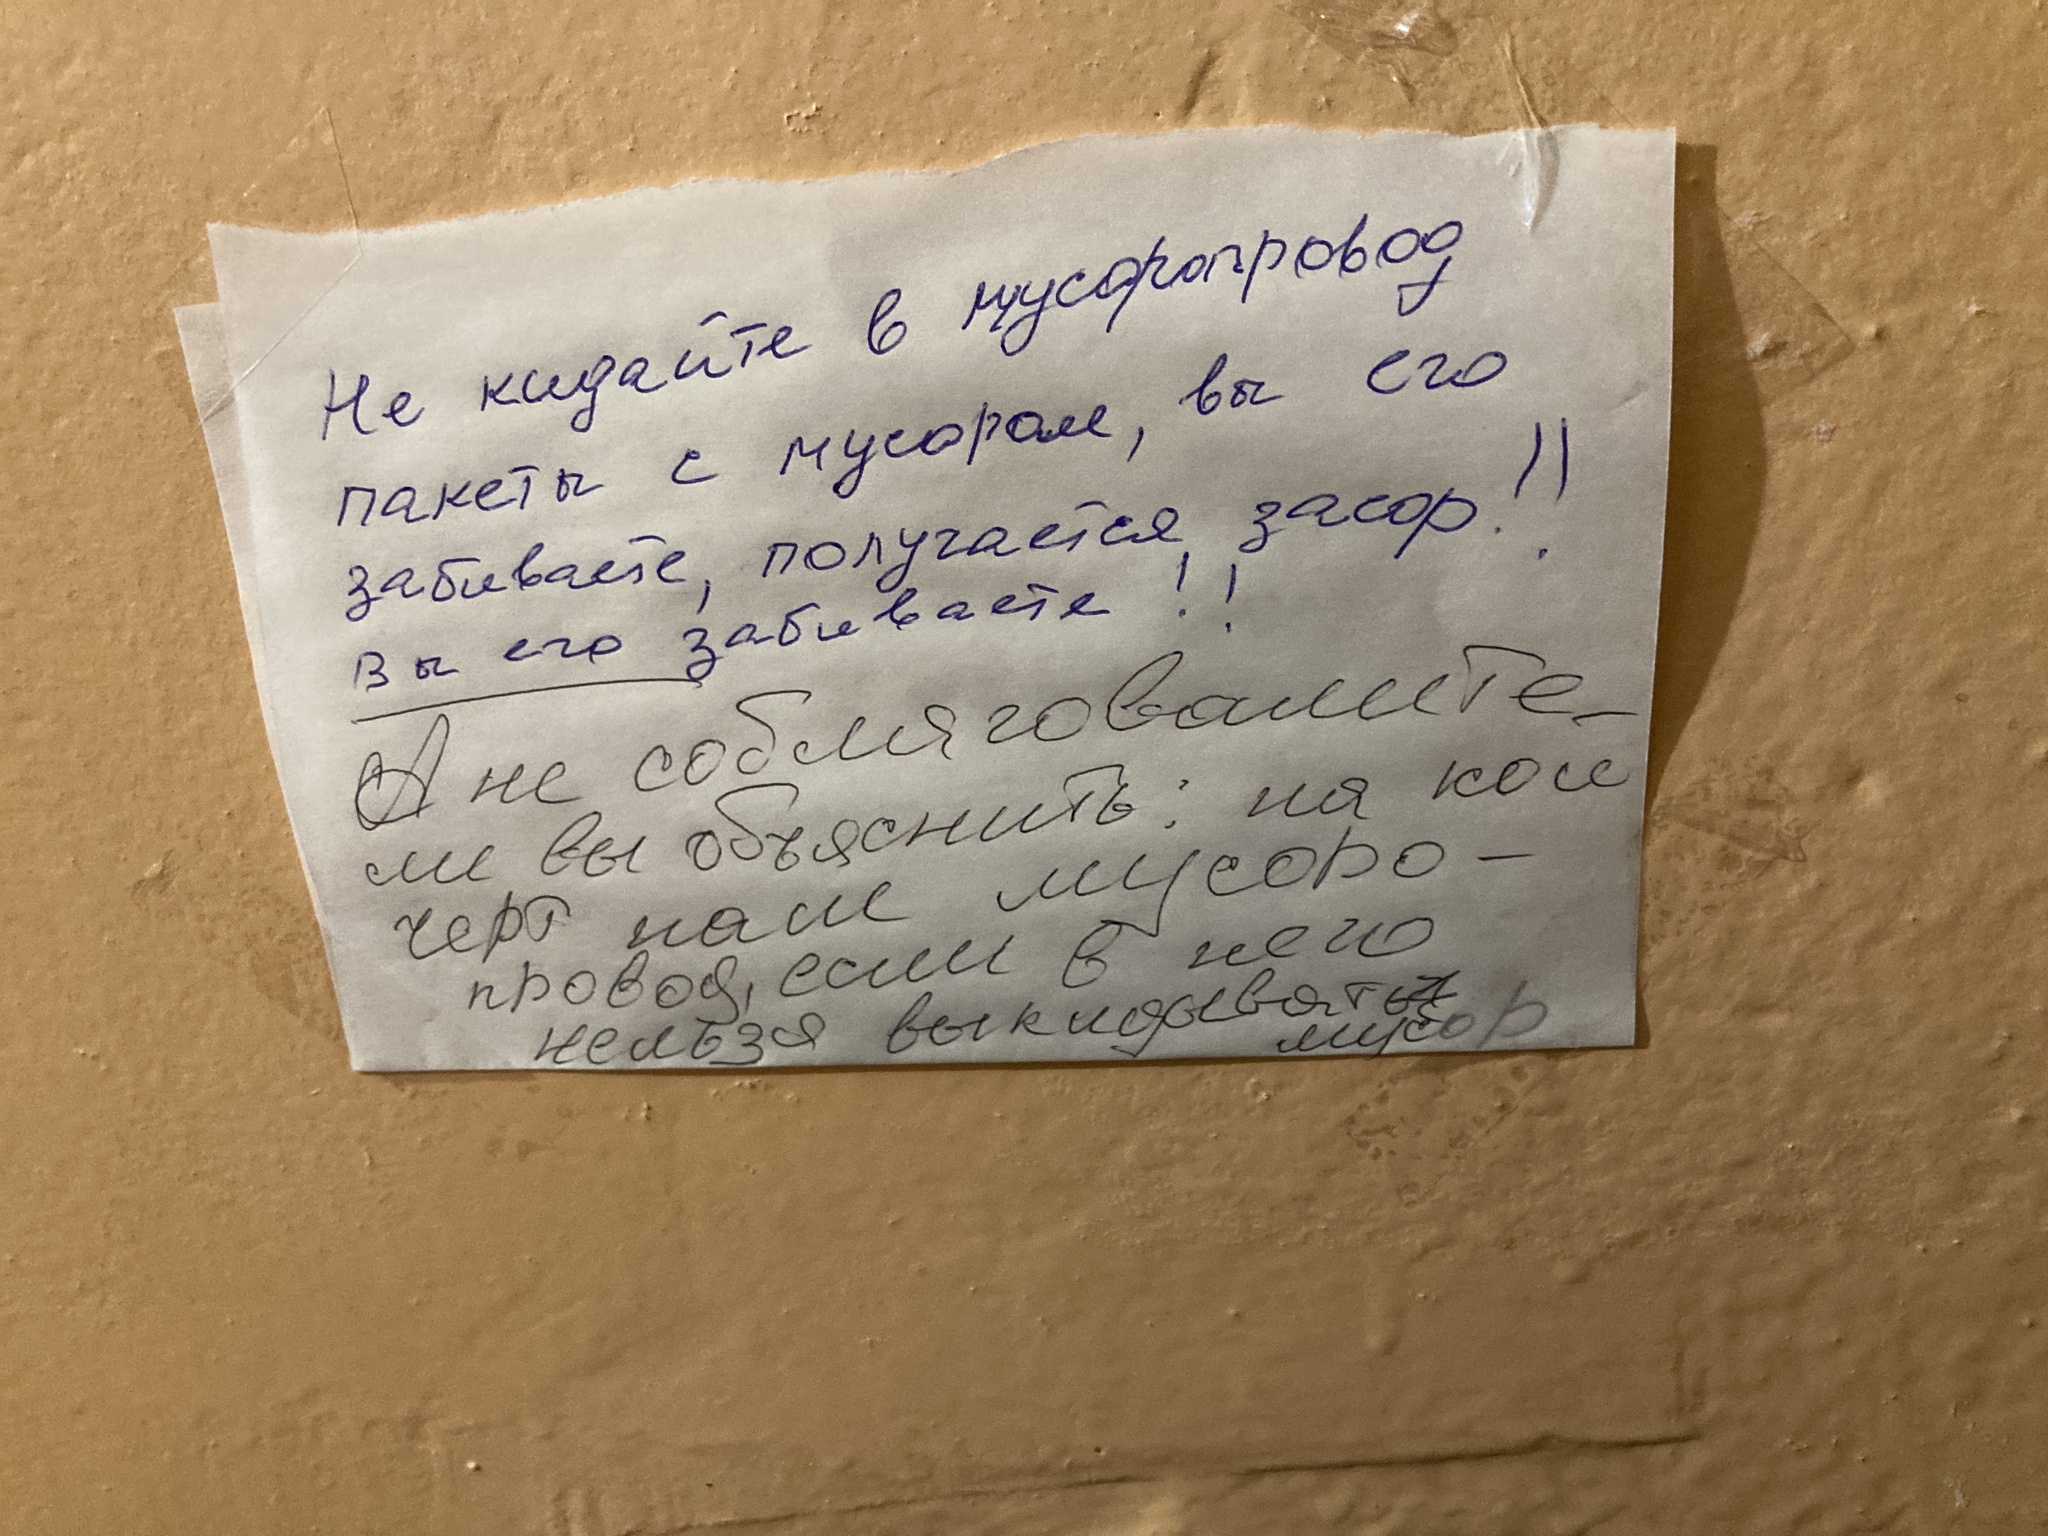 Не кидайте в мусоропровод
пакеты с мусором, вы его
забиваете, получается засор!!
Вы его забиваете!!
А не соблаговолите-
ли вы объяснить: на кой
черт нам мусоро-
провод, если в него
нельзя выкидывать
мусор